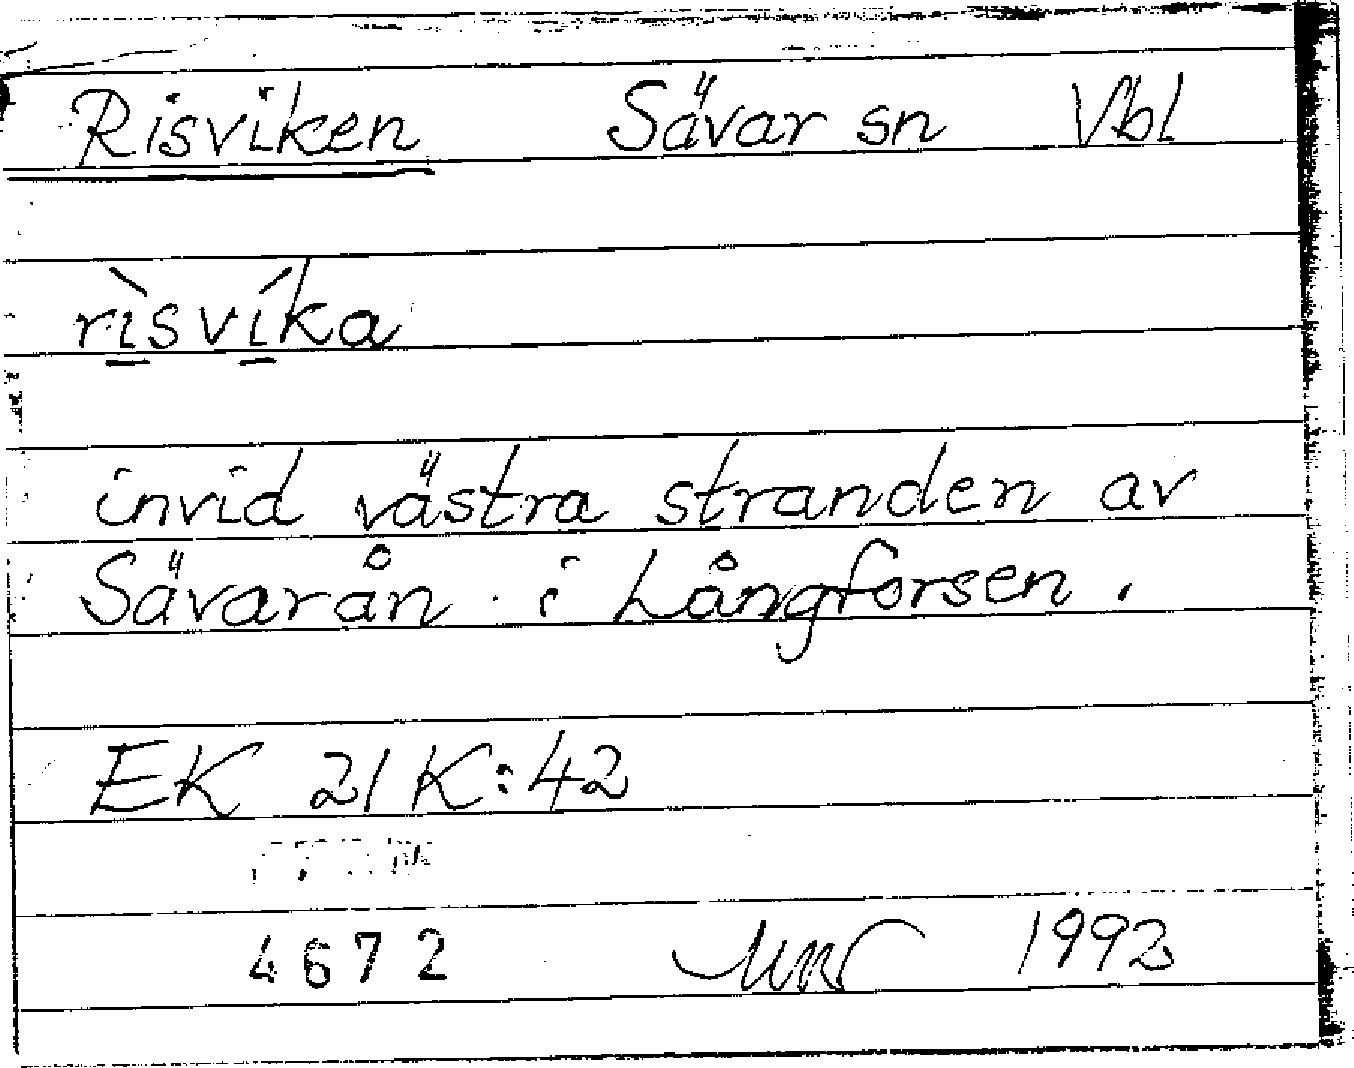 Risviken Sävar sn Vbl
rı̱̀svı̱́ka
invid västra stranden av
Sävarån i Långforsen.
EK 21K:42
4672 1992